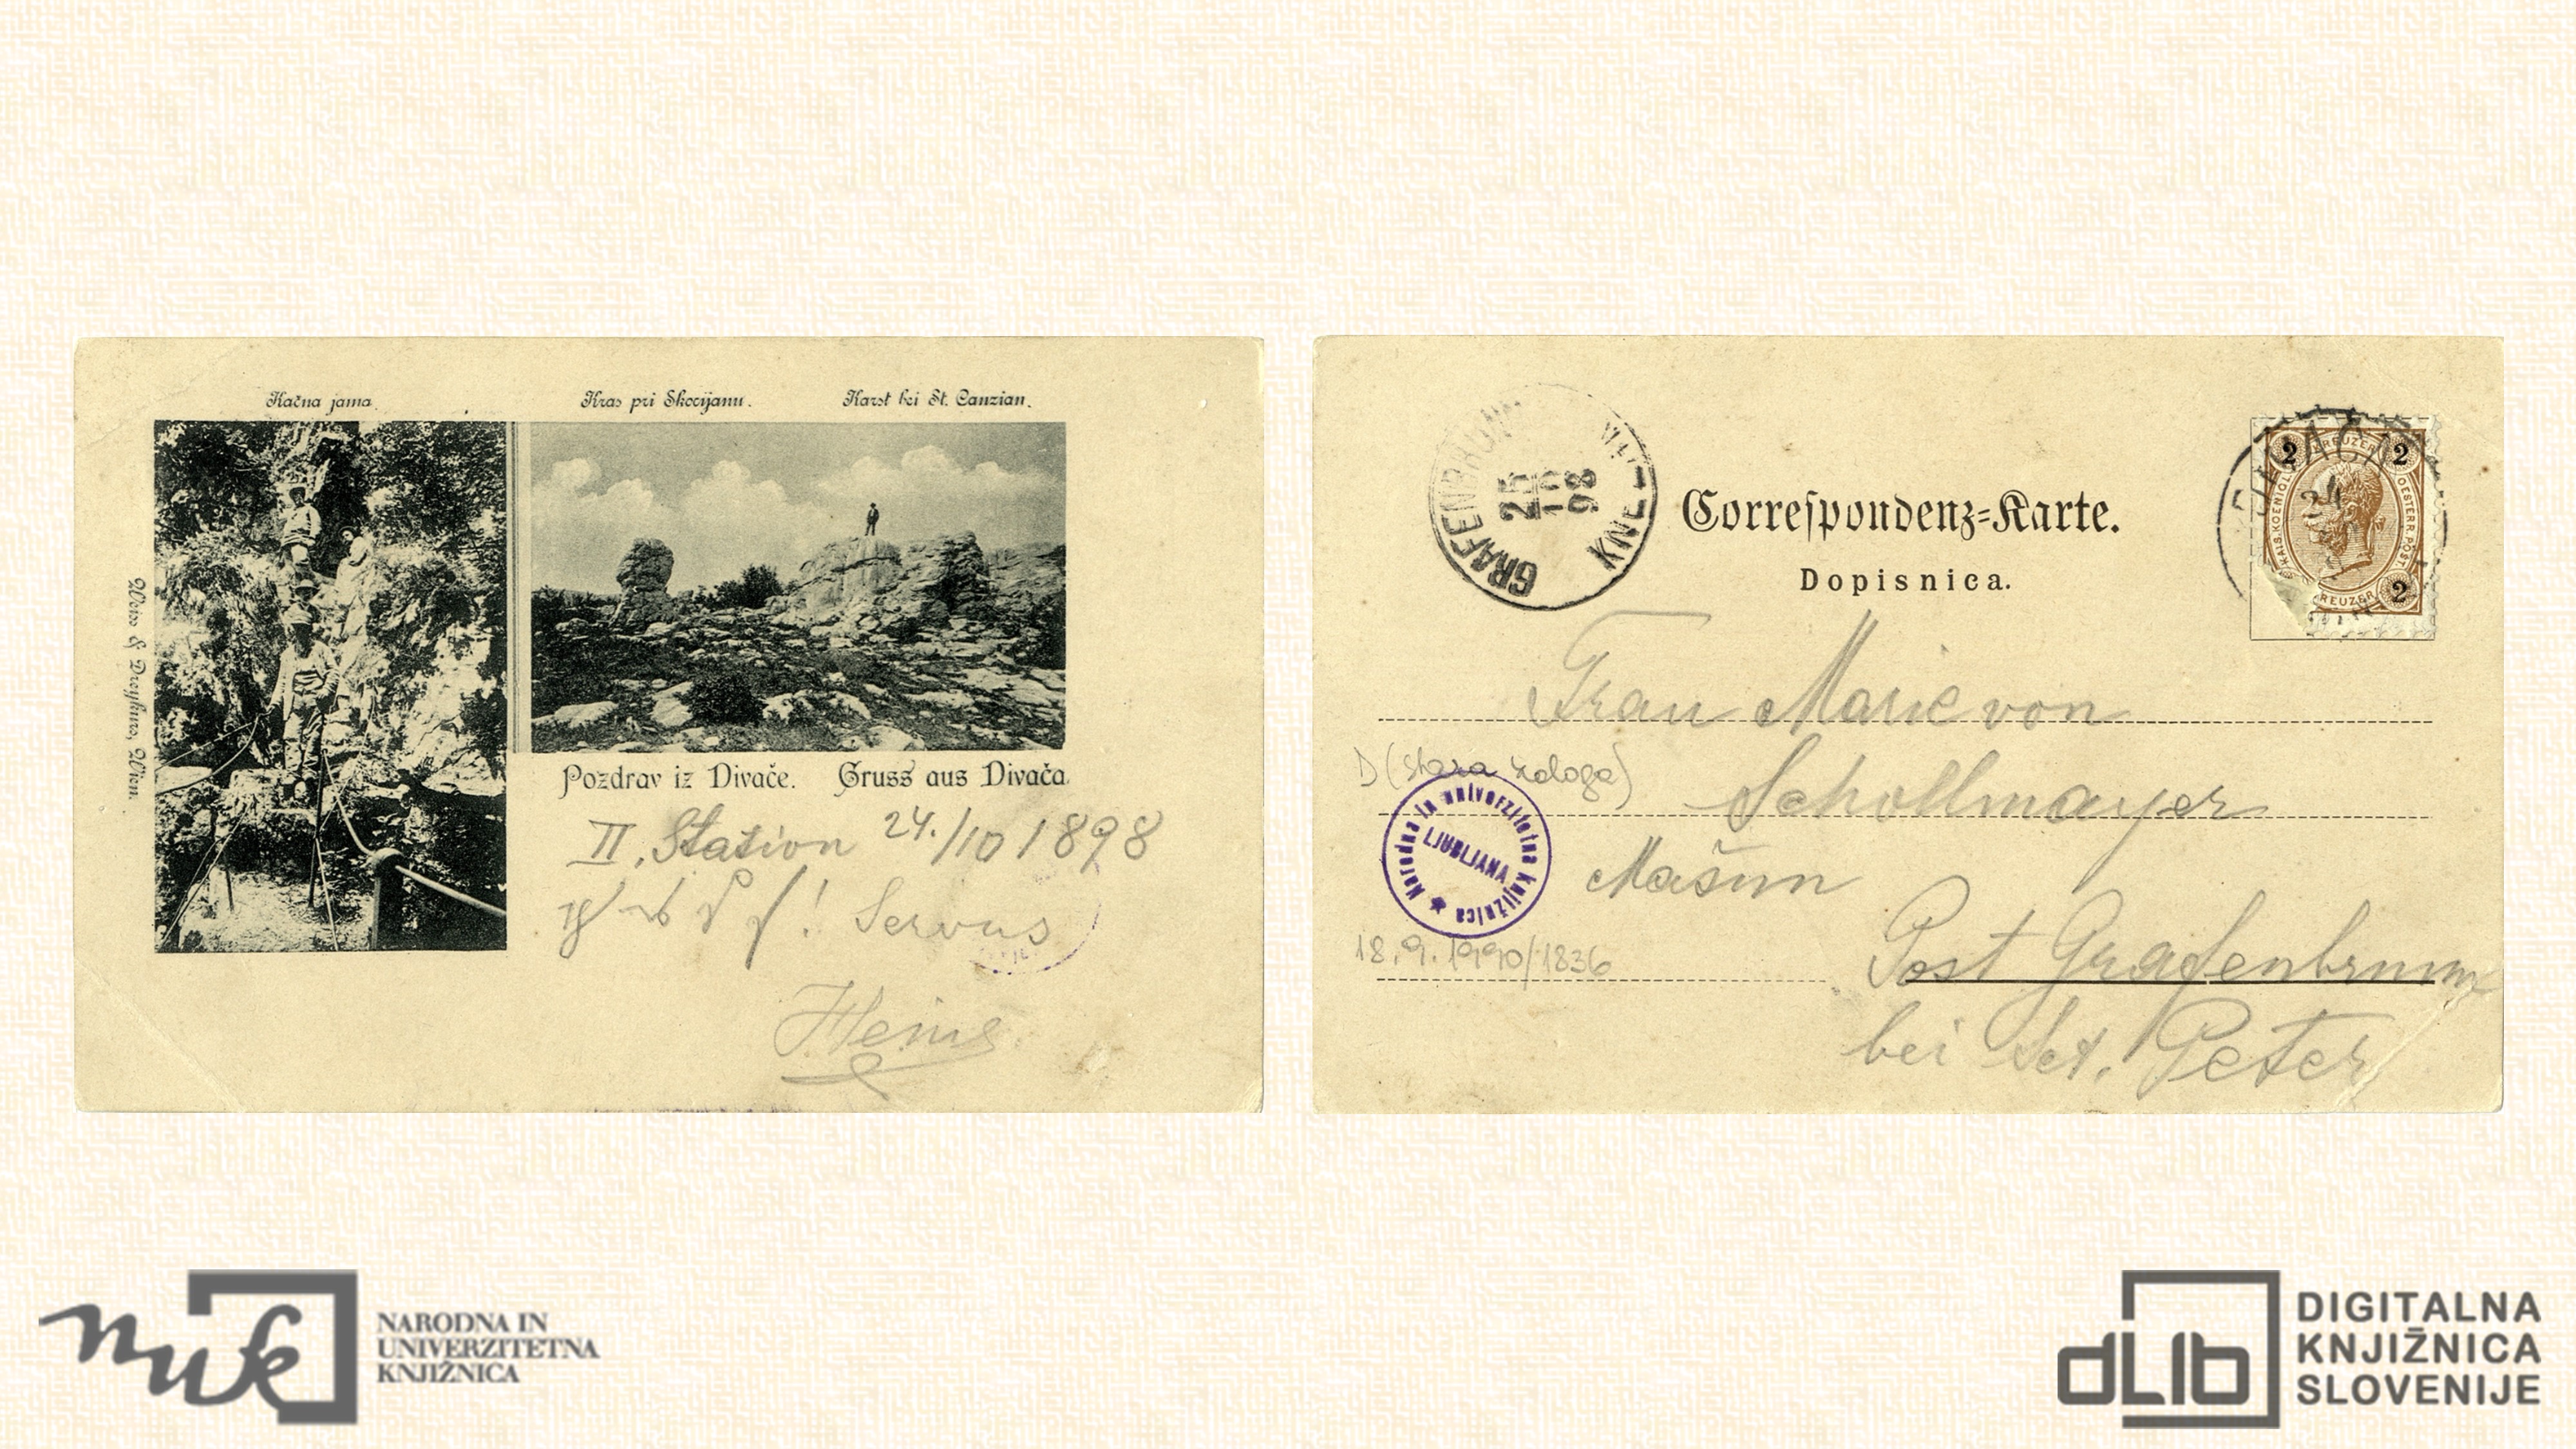 Kačna jama.
Kras pri Skocijanu.
Karst bei St. Canzian.
Weiss & Dreykurs, Wien.
Pozdrav iz Divače. Gruss aus Divača.
II. Station 24./10 1898
! Servus
Correſpondenz=Karte.
Dopisnica.
GRAFENBRUNN
25
10
98
KNE
2 KREUZER 2
24
KAIS. KOENIGL. OESTERR. POST
KREUZER 2
Frau Marie von
Schollmayer
Mašun
Post Grafenbrunn
bei Sct. Peter
D (stara zaloga)
Narodna in univerzitetna knjižnica
LJUBLJANA
18.9.1990/1836
nuk
NARODNA IN
UNIVERZITETNA
KNJIŽNICA
dLib
DIGITALNA
KNJIŽNICA
SLOVENIJE